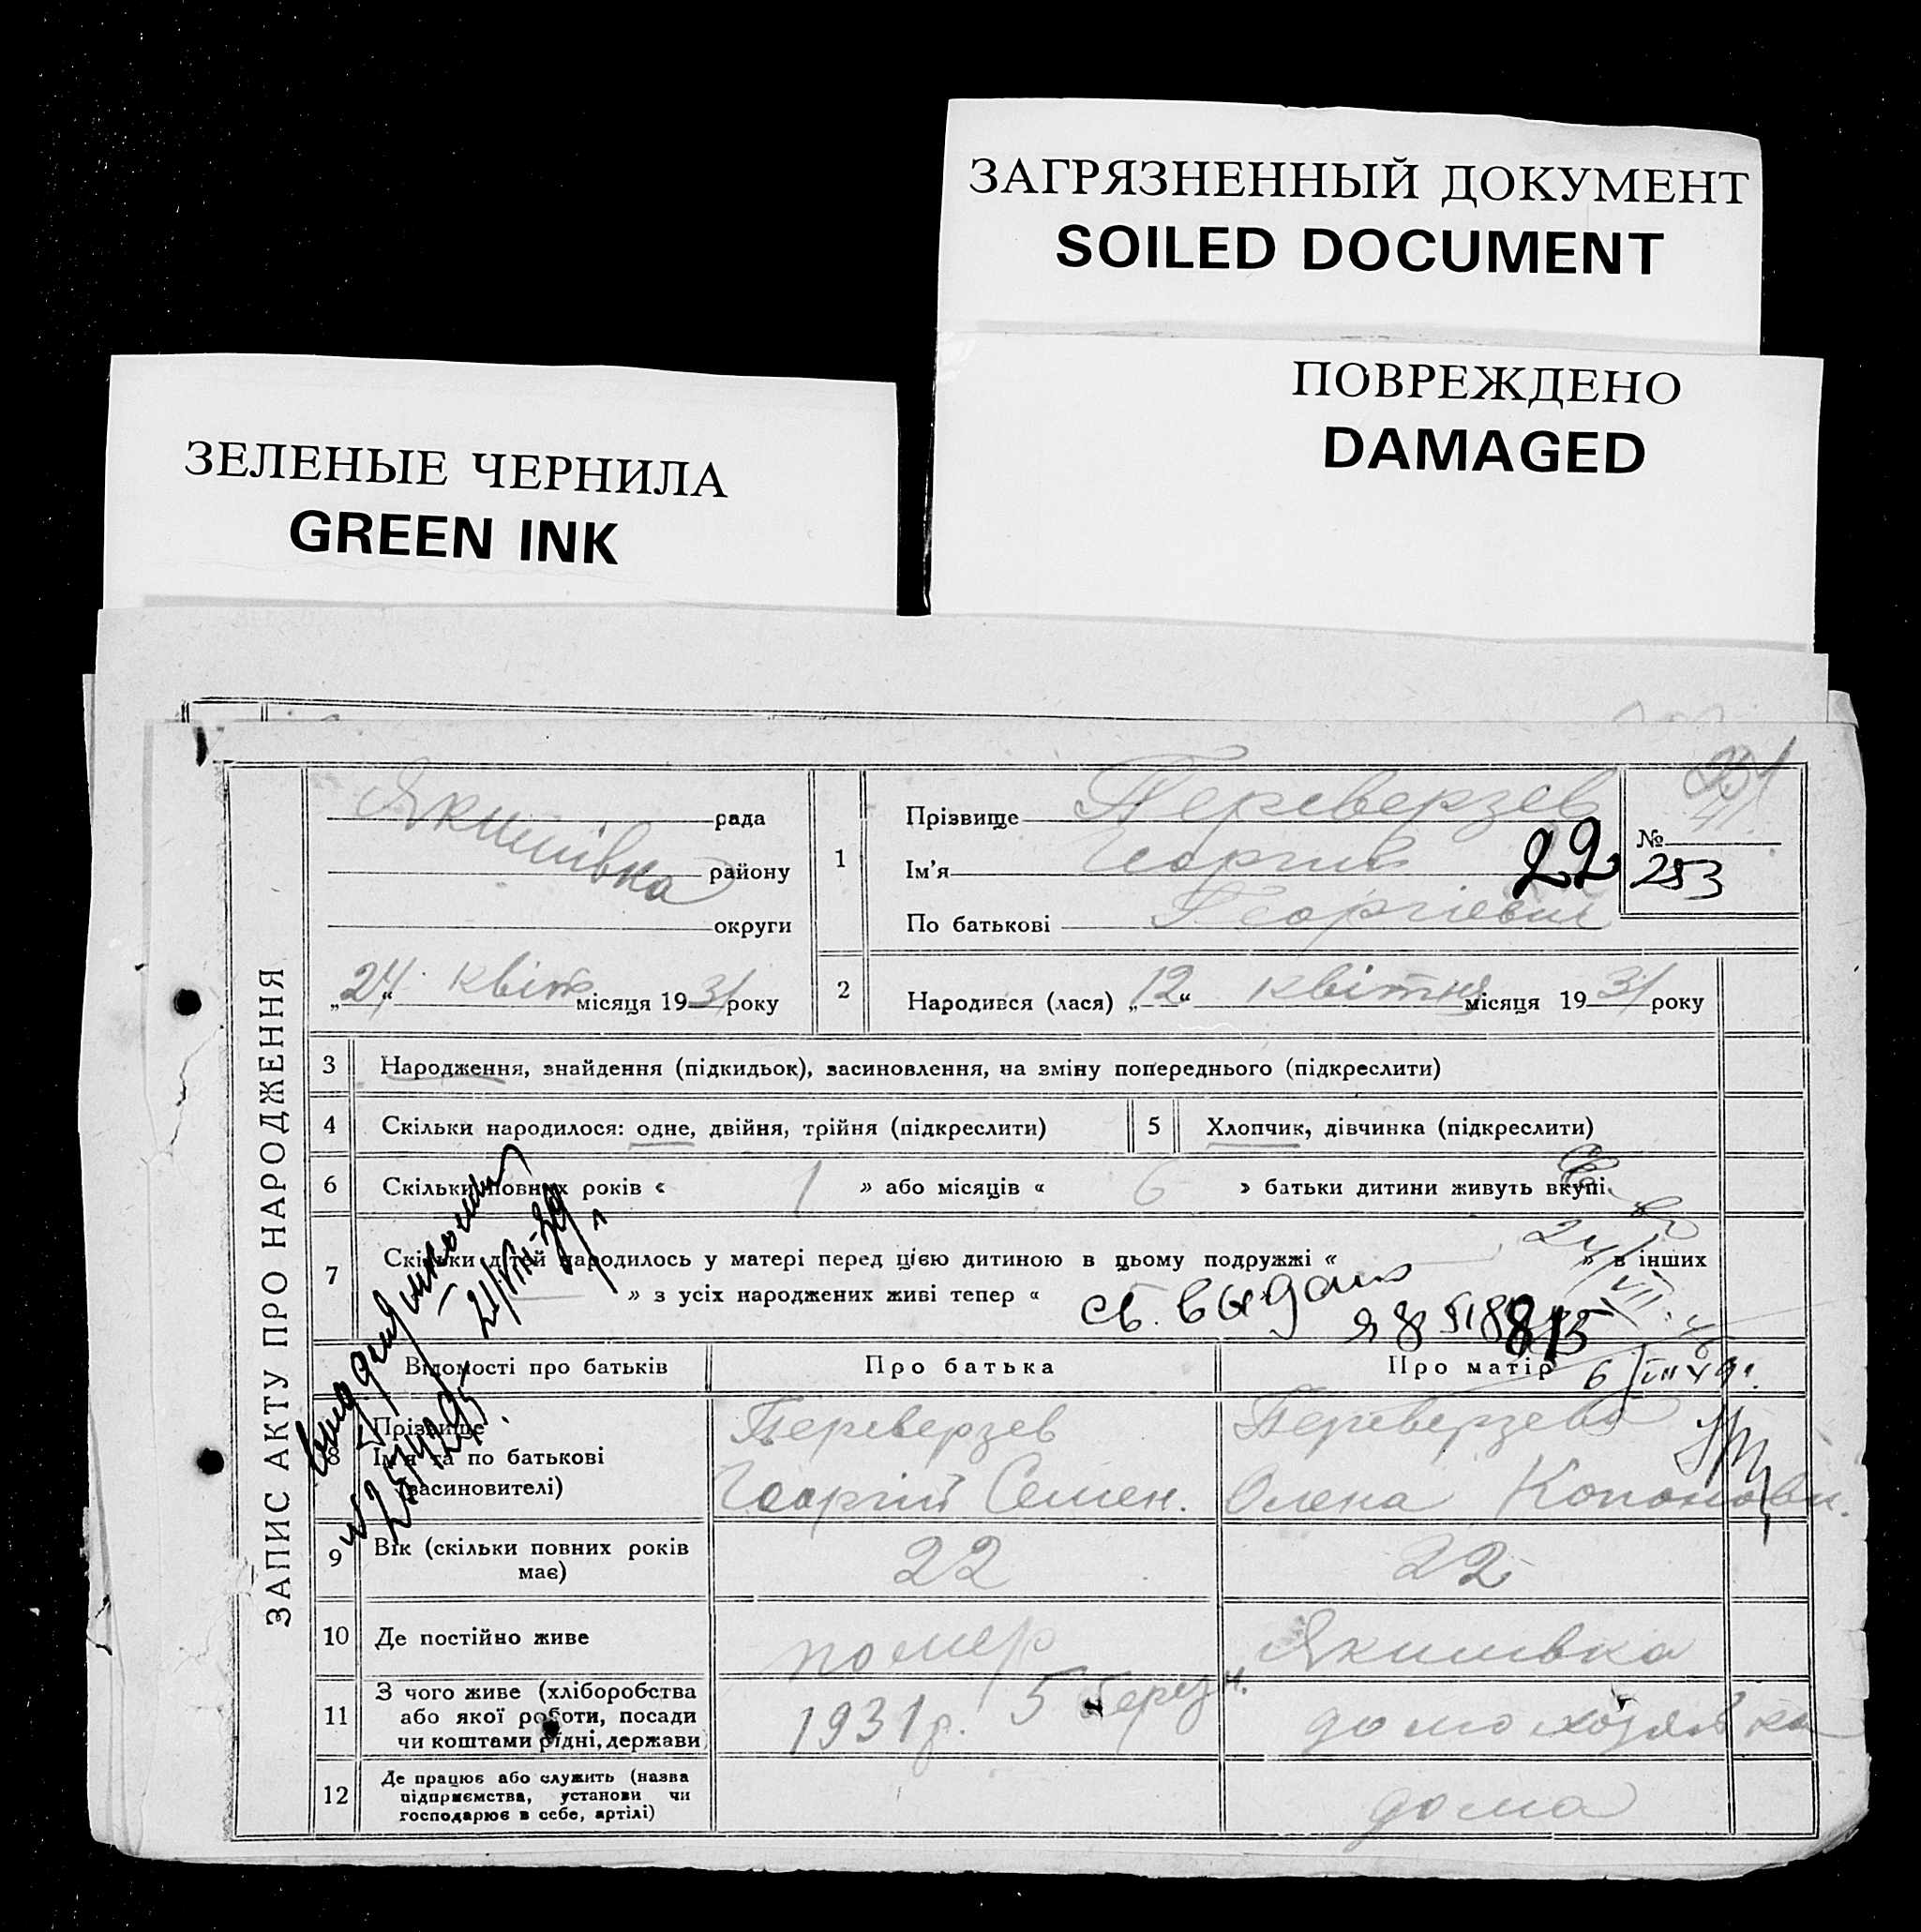 ЗАГРЯЗНЕННЫЙ ДОКУМЕНТ
SOILED DOCUMENT
ПОВРЕЖДЕНО
DAMAGED
ЗЕЛЕНЫЕ ЧЕРНИЛА
GREEN INK
ЗАПИС АКТУ ПРО НАРОДЖЕННЯ
Якимівка
рада
району
округи
„24“ квітн місяця 1931 року
1
Прізвище Переверзев
Ім'я Георгий
По батькові Георгіевич
22
№
41
253
2
Народився (лася) „12“ квітня місяця 1931 року
3 Народження, знайдення (підкидьок), засиновлення, на зміну попереднього (підкреслити)
4 Скільки народилося: одне, двійня, трійня (підкреслити)
5 Хлопчик, дівчинка (підкреслити)
6 Скільки повних років « 1 » або місяців « 6 » батьки дитини живуть вкупі
7 Скільки дітей народилось у матері перед цією дитиною в цьому подружжі « » в інших
» з усіх народжених живі тепер «
св. выдано
Відомості про батьків
Про батька
Про матір
8 Прізвище
Ім'я та по батькові
(засиновителі)
Переверзев
Георгій Семен.
Переверзева
Олена
9 Вік (скільки повних років має)
22
22
10 Де постійно живе
помер
Якимівка
11 З чого живе (хліборобства
або якої роботи, посади
чи коштами рідні, держави
1931 р. 5 березн.
домохозяйка
12 Де працює або служить (назва
підприємства, установи чи
господарює в себе, артілі)
дома